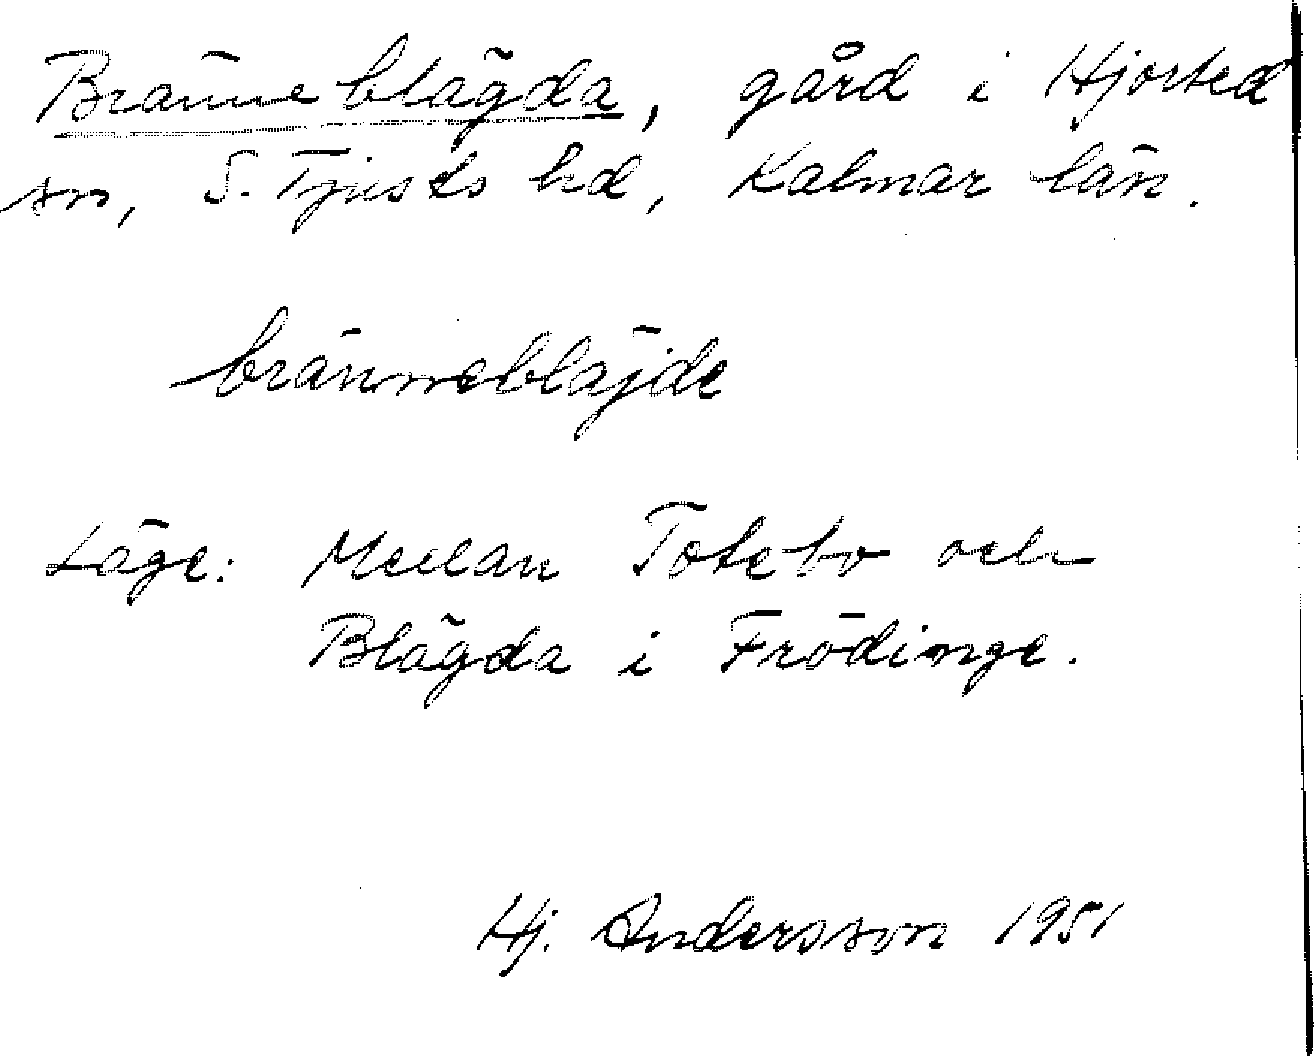 Bränneblägda, gård i Hjorted
sn, S. Tjusts hd, Kalmar län.
brännebläjde
Läge: Mellan Totebo och
Blägda i Frödinge.
Hj. Andersson 1951